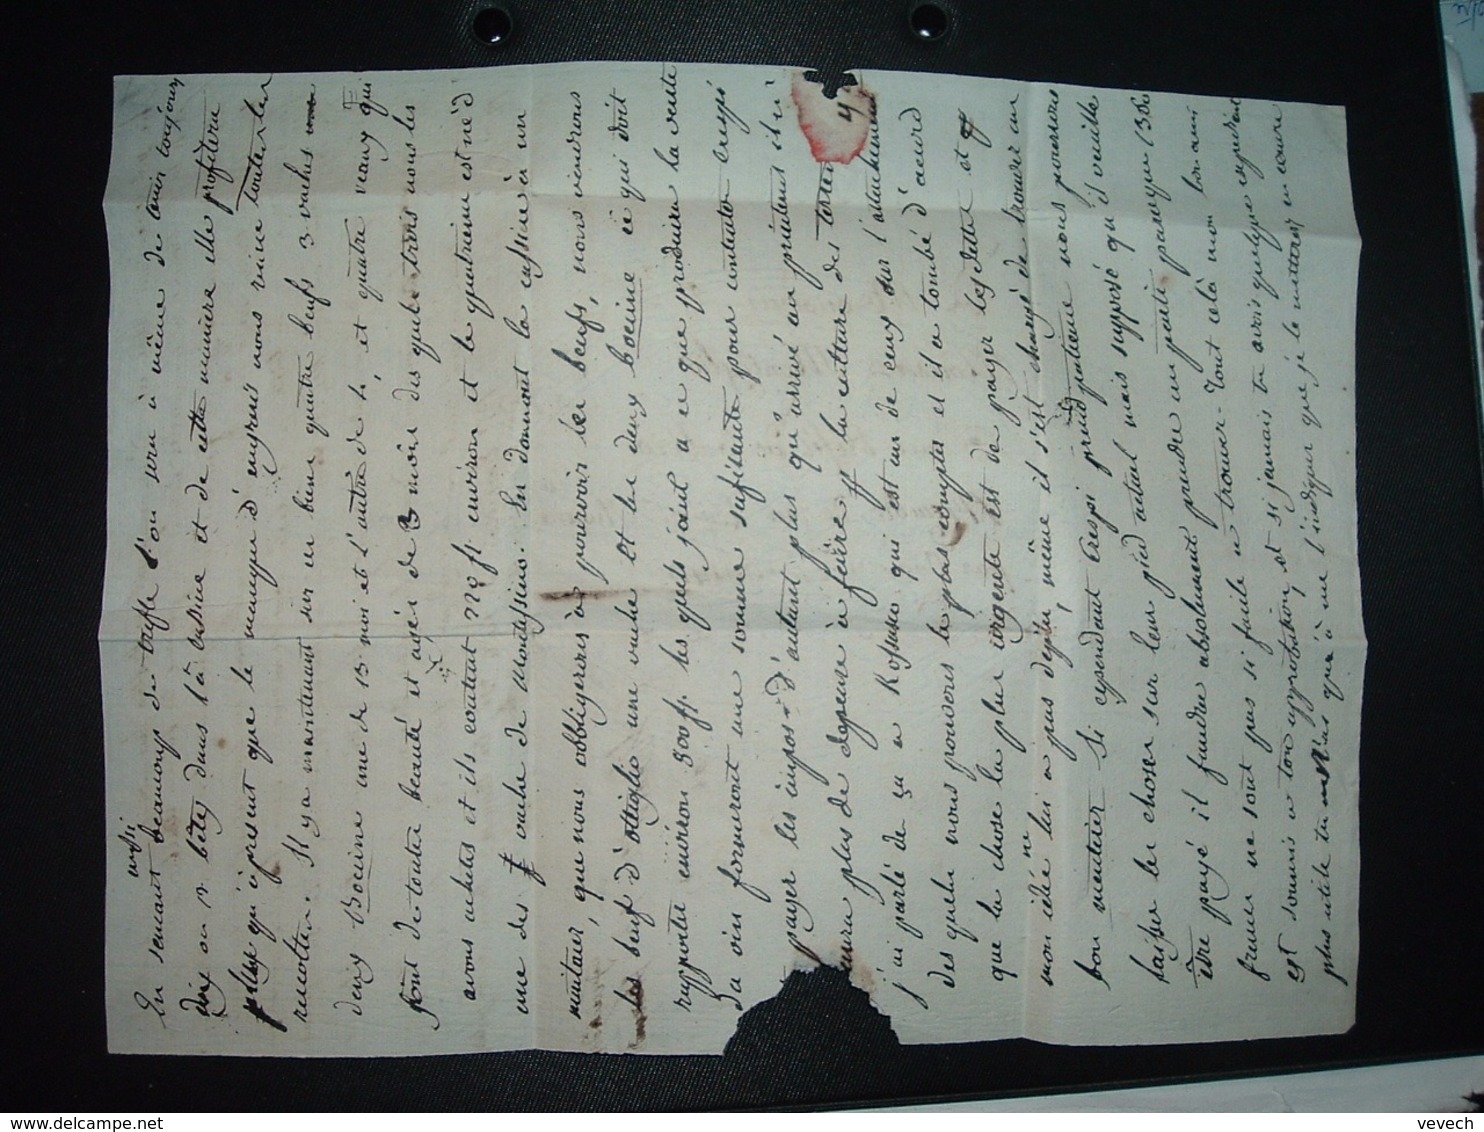 aussi
En semant beaucoup de trefle l'on sera à même de tenir toujours
dix ou 12 bêtes dans la cassine et de cette manière elle profitera
plus qu'à présent que le manque d'engrais nous ruine toutes les
recoltes. Il y a maintenant sur ce bien quatre beufs 3 vaches
deux Boccine une de 15 moi et l'autre de 4, et quatre veaux qui
sont de toute beauté et agés de 3 moi des quels trois nous les
avons achetes et ils coutent 112 f. environ et le quatrieme est né d
une des vache de Montessino. En donnant la cassine à un
maitaer, que nous obbligerons à pourvoir les beufs, nous vendrons
les beuf d'ottiglio une vache et les deux boccine ce qui doit
rapporter environ 500 f. les quels joint a ce que produira la vente
Da vin formeront une somme sufisante pour contenter Crespi
payer les impos - d'autant plus qu'arrivé au printems il n'i
aura plus de depense à faire pr la culture des terres
j'ai parlé de ça a Rosnati qui est un de ceux sur l'attachement
des quels nous pouvons le plus compter et il a tombé d'accord
que la chose la plus urgente est de payer les dette et q
mon idée n'a pas deplu, même il s'est chargé de trouver un
bon maitier. Si cependant Crespi prend patience nous pouvons
laisser les chose sur leur pied actuel mais supposé qu'il veuille
être payé il faudra absolument prendre un parti parceque 1300
francs ne sont pas si facile a trouver - Tout cela mon bon ami
est soumis a ton approbation, et si jamais tu avois quelque expedient
plus utile tu n'as qu'à me l'indiquer que je le mettrez en œuvre